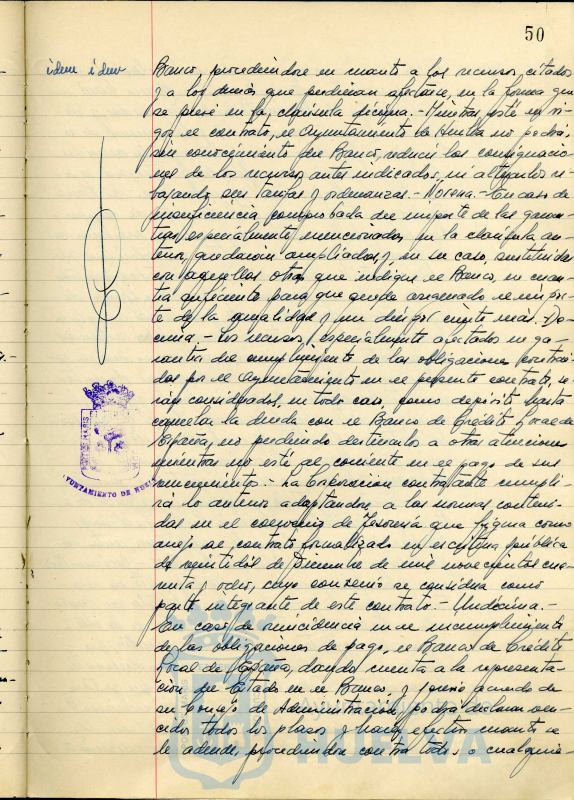 50
idem idem
Banco, procediéndose en cuanto a los recursos citados
y a los demás que pudieran afectarse, en la forma que
se prevé en la cláusula décima.- Mientras esté en vi-
gor el contrato, el Ayuntamiento de Huelva no podrá,
sin conocimiento del Banco, reducir las consignacio-
nes de los recursos antes indicados, ni alterarlos re-
bajando sus tarifas y ordenanzas.- Novena.- En caso de
insuficiencia comprobada del importe de las garan-
tías especialmente mencionadas en la cláusula an-
terior, quedarán ampliadas y, en su caso, sustituidas
con aquellas otras que indique el Banco, en cuan-
tía suficiente para que quede asegurado el impor-
te de la anualidad y un diez por ciento más. Dé-
cima.- Los recursos especialmente afectados en ga-
rantía del cumplimiento de las obligaciones contraí-
das por el Ayuntamiento en el presente contrato, se-
rán considerados, en todo caso, como depósito hasta
cancelar la deuda con el Banco de Crédito Local de
España, no pudiendo destinarlos a otras atenciones
mientras no esté al corriente en el pago de sus
vencimientos.- La Corporación contratante cumpli-
rá lo anterior adaptándose a las normas conteni-
das en el convenio de Tesorería que figura como
anejo al contrato formalizado en escritura pública
de veintidos de Diciembre de mil novecientos cua-
renta y ocho, cuyo convenio se considera como
parte integrante de este contrato.- Undécima.-
En caso de reincidencia en el incumplimiento
de las obligaciones de pago, el Banco de Crédito
Local de España, dando cuenta a la representa-
ción del Estado en el Banco, y previo acuerdo de
su Consejo de Administración, podrá declarar ven-
cidos todos los plazos y hacer efectivo cuanto se
le adeude, procediendo contra todos o cualquie-
AYUNTAMIENTO DE HUELVA
HUELVA